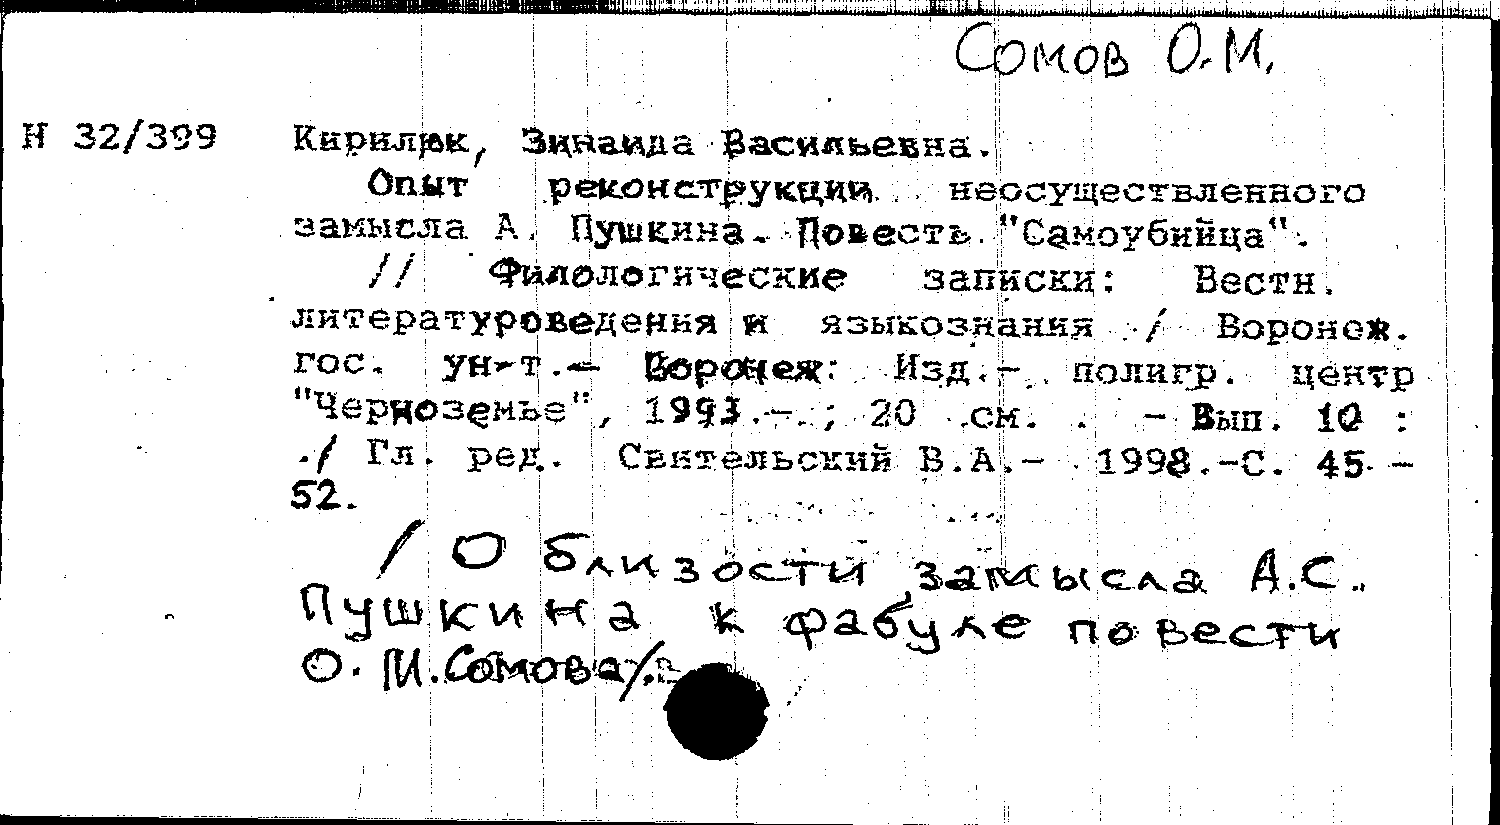 Сомов О.М.
Н 32/399 Кирилюк, Зинаида Васильевна.
Опыт реконструкции неосуществленного
замысла А. Пушкина. Повесть "Самоубийца".
// Филологические записки: Вестн.
литературоведения и языкознания / Воронеж.
гос. ун-т.- Воронеж: Изд.- полигр. центр
"Черноземье", 1993.- ; 20 см. . - Вып. 10 :
./ Гл. ред. Свительский В.А.- 1998.-С. 45 -
52.
/ О близости замысла А.С.
Пушкина к фабуле повести
О. М. Сомова/.